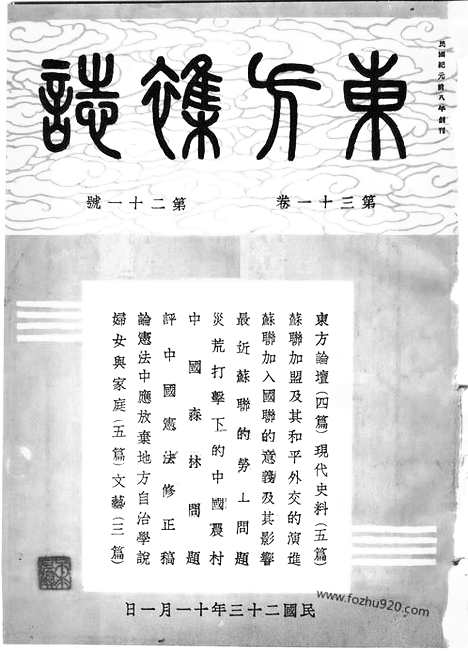 民國紀元前八年創刊
東方雜誌
第三十一卷 第二十一號
東方論壇(四篇)現代史料(五篇)
蘇聯加盟及其和平外交的演進
蘇聯加入國聯的意義及其影響
最近蘇聯的勞工問題
災荒打擊下的中國農村
中國森林問題
評中國憲法修正稿
論憲法中應放棄地方自治學說
婦女與家庭(五篇)文藝(三篇)
民國二十三年十一月一日
www.fozhu920.com